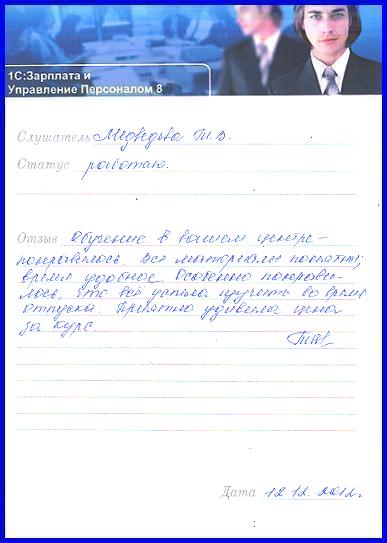 1С:Зарплата и
Управление Персоналом 8
Слушатель Медведева Т.В.
Статус работаю.
Отзыв Обучение в вашем центре
понравилось. Все материалы понятны,
время удобное. Особенно понрави-
лось, что всё успела изучить во время
отпуска. Приятно удивила цена
за курс.
Дата 12.12.2012г.